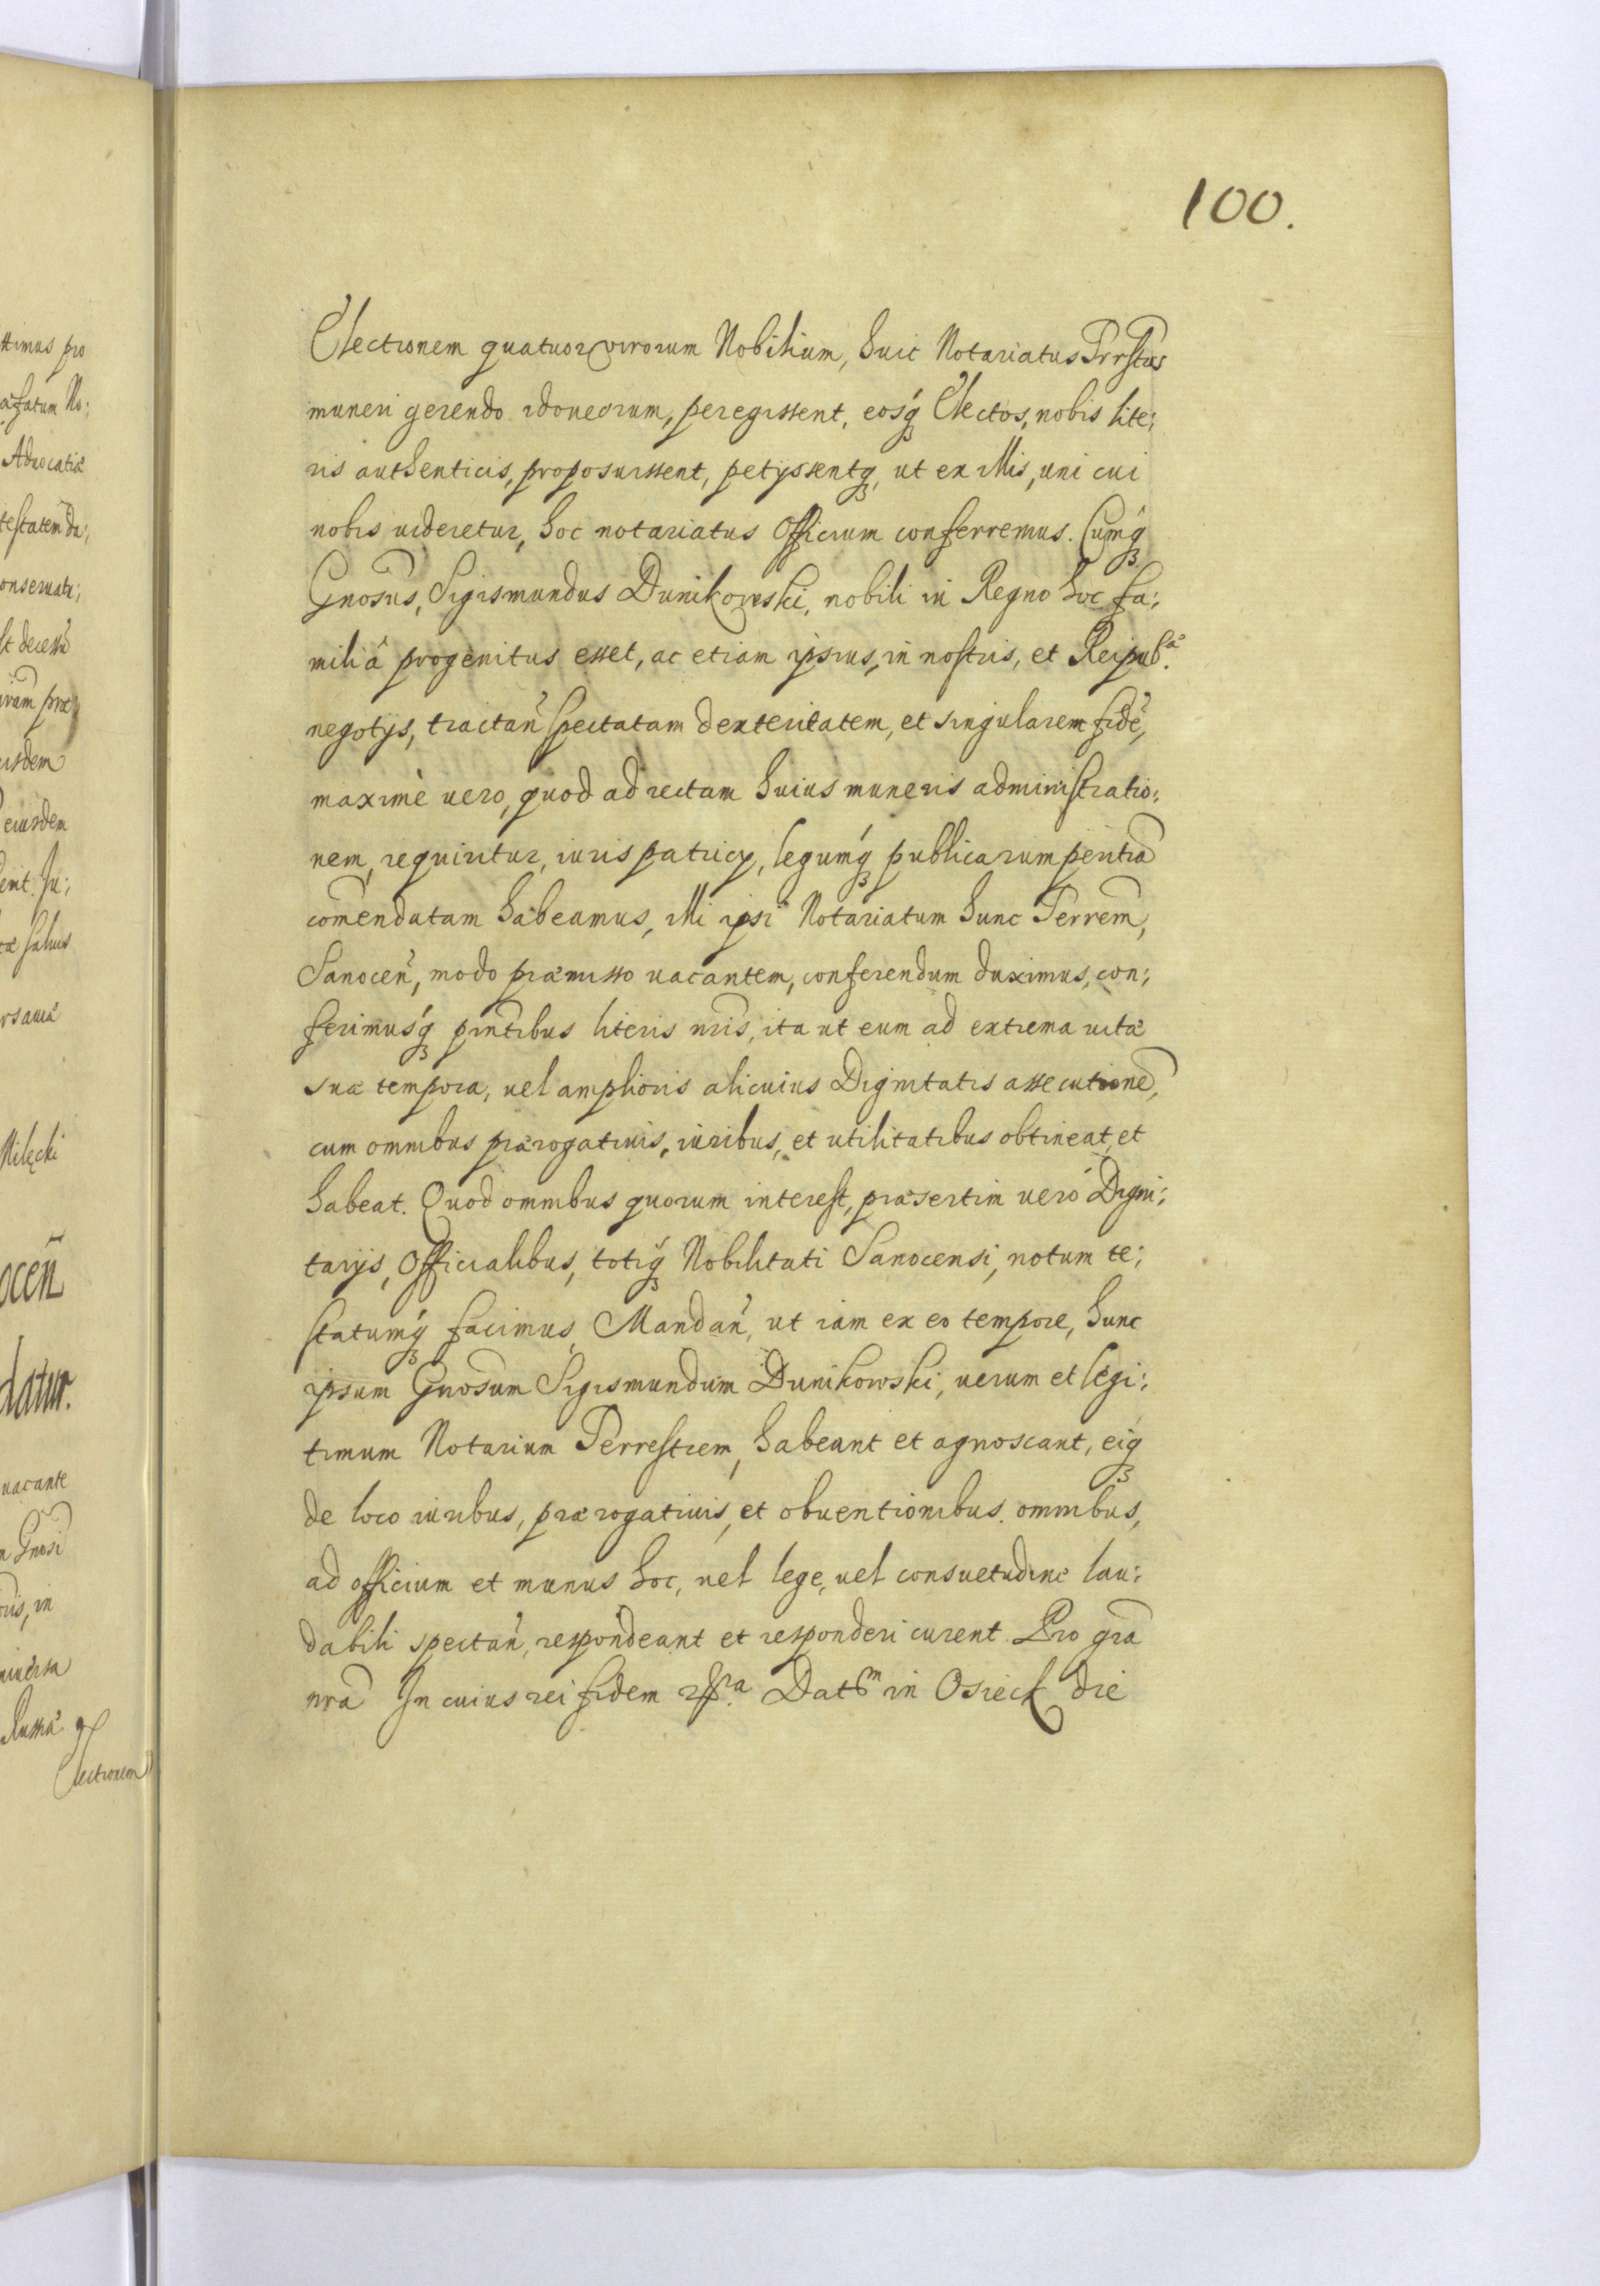 100.
Electionem quatuor virorum Nobilium, huic Notariatus Trrstris
muneri gerendo idoneorum, peregissent, eosq₃ Electos, nobis lite:
ris authenticis, proposuissent, petyssentq₃, ut ex illis, uni cui
nobis uideretur, hoc notariatus Officium conferremus. Cumq₃
Gnosus, Sigismundus Dunikowski, nobili in Regno hoc fa:
miliâ progenitus esset, ac etiam ipsius, in nostris, et Reipub.cæ
negotys, tractañ spectatam dexteritatem, et singularem fidē,
maximè uero, quod ad rectam huius muneris administratio:
nem, requiritur, iuris patricy, legumq₃ publicarum peritiā
comendatam habeamus, illi ipsi Notariatum hunc Terrem̃,
Sanoceñ, modo præmisso uacantem, conferendum duximus, con:
ferimusq₃ pntibus literis nris, ita ut eum ad extrema uitæ
suæ tempora, uel amplioris alicuius Dignitatis assecutionē,
cum omnibus prærogatiuis, iuribus, et utilitatibus obtineat, et
habeat. Quod omnibus quorum interest, præsertim uerò Digni:
tarijs, Officialibus, totiq₃ Nobilitati Sanocensi, notum te:
statumq₃ facimus, Mandañ, ut iam ex eo tempore, hunc
ipsum Gnosum Sigismundum Dunikowski, uerum et legi:
timum Notarium Terrestrem, habeant et agnoscant, eiq₃
de loco iuribus, prærogatiuis, et obuentionibus omnibus,
ad officium et munus hoc, uel lege, uel consuetudine lau:
dabili spectañ, respondeant et responderi curent. Pro grā
nrā In cuius rei fidem Datt͠m in Osieck die
ttimus pro
Aduocatiæ
eiusdem
Milęcki
uacante
Electionem